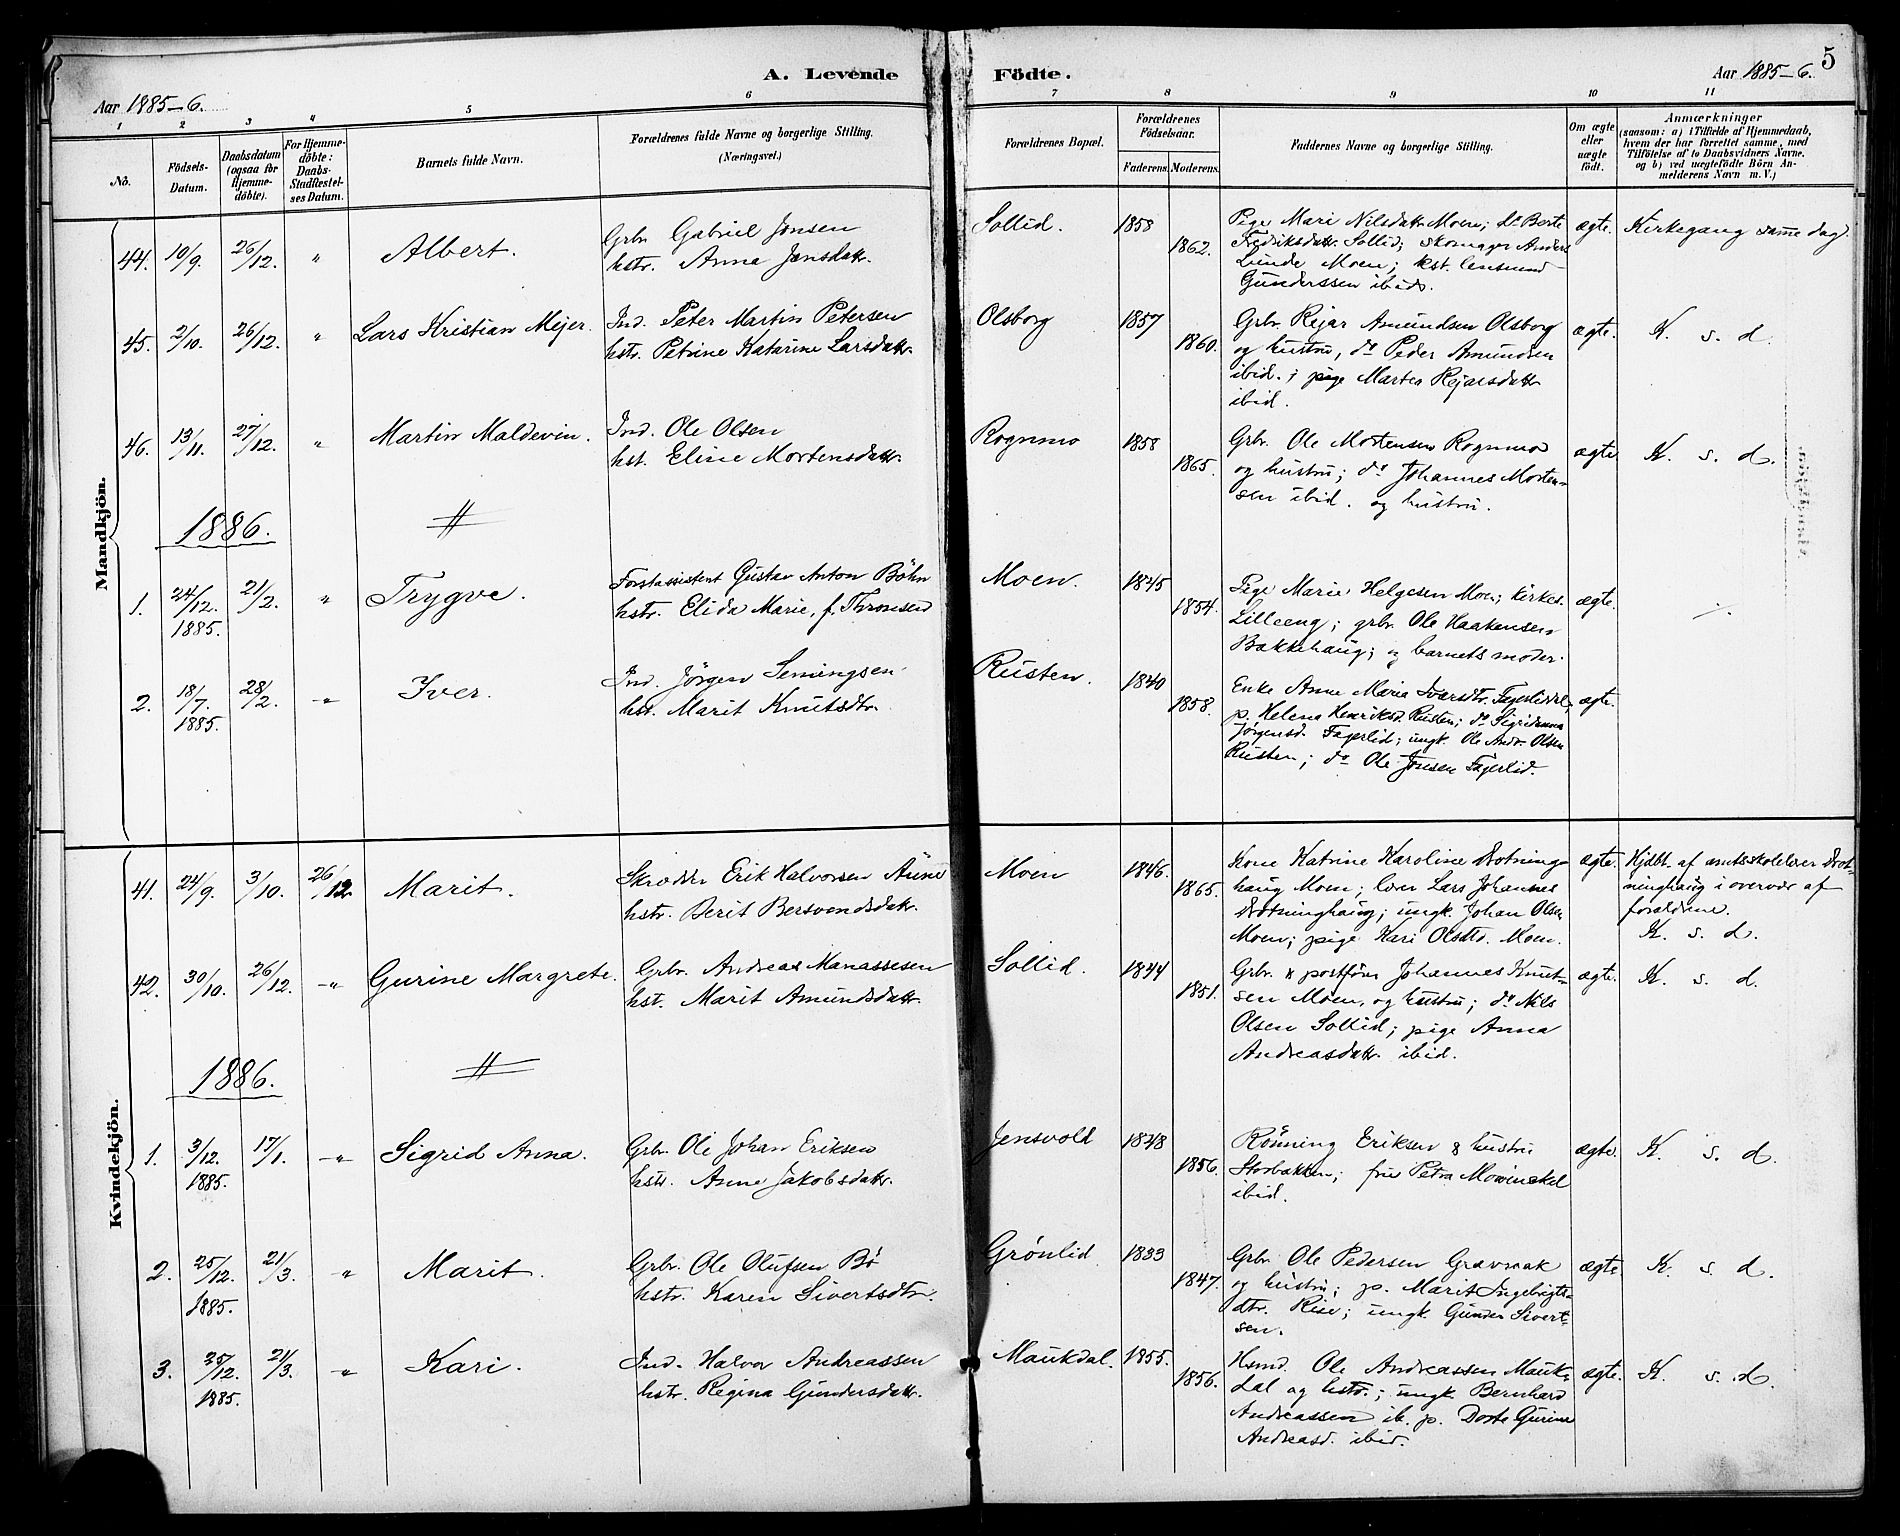 A. Levende Födte.
5
Aar 1885-6.
Aar 1885-6.
1 2 3 4 5 6 7 8 9 10 11
No.
Födsels-Datum.
Daabsdatum (ogsaa for Hjemmedöbte).
For Hjemmedöbte: Daabs-Stadfæstelses Datum.
Barnets fulde Navn.
Forældrenes fulde Navne og borgerlige Stilling.
(Næringsvei.)
Forældrenes Bopæl.
Forældrenes Födselsaar.
Faderens. Moderens.
Faddernes Navne og borgerlige Stilling.
Om ægte eller uægte födt.
Anmærkninger
(saasom: a) i Tilfælde af Hjemmedaab, hvem der har forrettet samme, med Tilföielse af to Daabsvidners Navne, og b) ved uægtefödte Börn Anmelderens Navn m. V.)
Mandkjön.
44. 10/9. 26/12. " Albert.
Grbr. Gabriel Jensen
hstr. Anna Jensdatr.
Sollid. 1858 1862.
Pige Mari Nilsdatr Moen; do Berte
Fredriksdatr. Sollid; skomager Anders
Lunde Moen; kst. lensmand
Gunderssen ibid.
ægte. Kirkegang samme dag.
45. 2/10. 26/12. " Lars Kristian Mejer.
Ind. Peter Martin Petersen
hstr. Petrine Katarine Larsdatr.
Olsborg 1857 1860.
Grbr. Rejar Amundsen Olsborg
og hustru, do Peder Amundsen
ibid.; pige Martea Rejarsdatr
ibid.
ægte. K. s. d.
46. 13/11. 27/12. " Martin Maldevin.
Ind. Ole Olsen
hst. Eline Mortensdatr.
Rognmo 1858 1865.
Grbr. Ole Mortensen Rognmo
og hustru; do Johannes Morten-
sen ibid. og hustru.
ægte K. s. d.
1886.
1. 24/12. 1885. 21/2. " Trygve.
Forstassistent Gustav Anton Böhn
hstr. Elida Marie, f. Thronsen
Moen. 1845 1854.
Pige Marie Helgesen Moen; kirkes.
Lilleeng; grbr. Ole Haakensen
Bakkehaug; og barnets moder.
ægte.
2. 18/7. 1885. 28/2. " Iver.
Ind. Jörgen Semingsen
hst. Marit Knutsdtr.
Rusten. 1840 1858.
Enke Anne Maria Ivarsdtr.
p. Helena Henriksd. Rusten; do
Jörgensd. Fagerlid; ungk. Ole Andr. Olsen
Rusten; do Ole Jensen Fagerlid.
ægte.
Kvindekjön.
41. 24/9. 3/10. 26/12. Marit.
Skrædder Erik Halvorsen Aune
hstr. Berit Bersvendsdatr.
Moen 1846. 1865.
Kone Katrine Karoline Drotning-
haug Moen; lærer Lars Johannes
Drotninghaug; ungk. Johan Olsen
Moen; pige Kari Olsdtr. Moen.
ægte. Hjdbt. af amtsskolelærer Drot-
ninghaug i overvær af
forældrene.
K. s. d.
42. 30/10. 26/12. " Gurine Margrete.
Grbr. Andreas Manassesen
hst. Marit Amundsdatr.
Sollid. 1844 1851.
Grbr. & postförer Johannes Knut-
sen Moen, og hustru; do Nils
Olsen Sollid; pige Anna
Andreasdatr. ibid.
ægte. K. s. d.
1886.
1. 3/12. 1885. 17/1. " Sigrid Anna.
Grbr. Ole Johan Eriksen
hstr. Anne Jakobsdatr.
Jensvold 1848 1856.
Rönning Eriksen & hustru
Storbakken; fru Petra Mowinckel
ibid.
ægte. K. s. d.
2. 25/12. 1885. 21/3. " Marit.
Grbr. Ole Olufsen Bø
hstr. Karen Sivertsdtr.
Grønlid 1833 1847.
Grbr. Ole Pedersen Gravmak
og hustru; p. Marit Ingebrigts-
dtr. Rise; ungk. Gunder Sivert-
sen.
ægte. K. s. d.
3. 25/12. 1885. 21/3. " Kari.
Ind. Halvor Andreassen
hstr. Regina Gundersdatr.
Maukdal. 1855. 1856.
Hsmd. Ole Andreassen Mauk-
dal og hstr.; ungk. Bernhard
Andreassen ib. p. Dorte Gurine
Andreasd. ibid.
ægte. K. s. d.